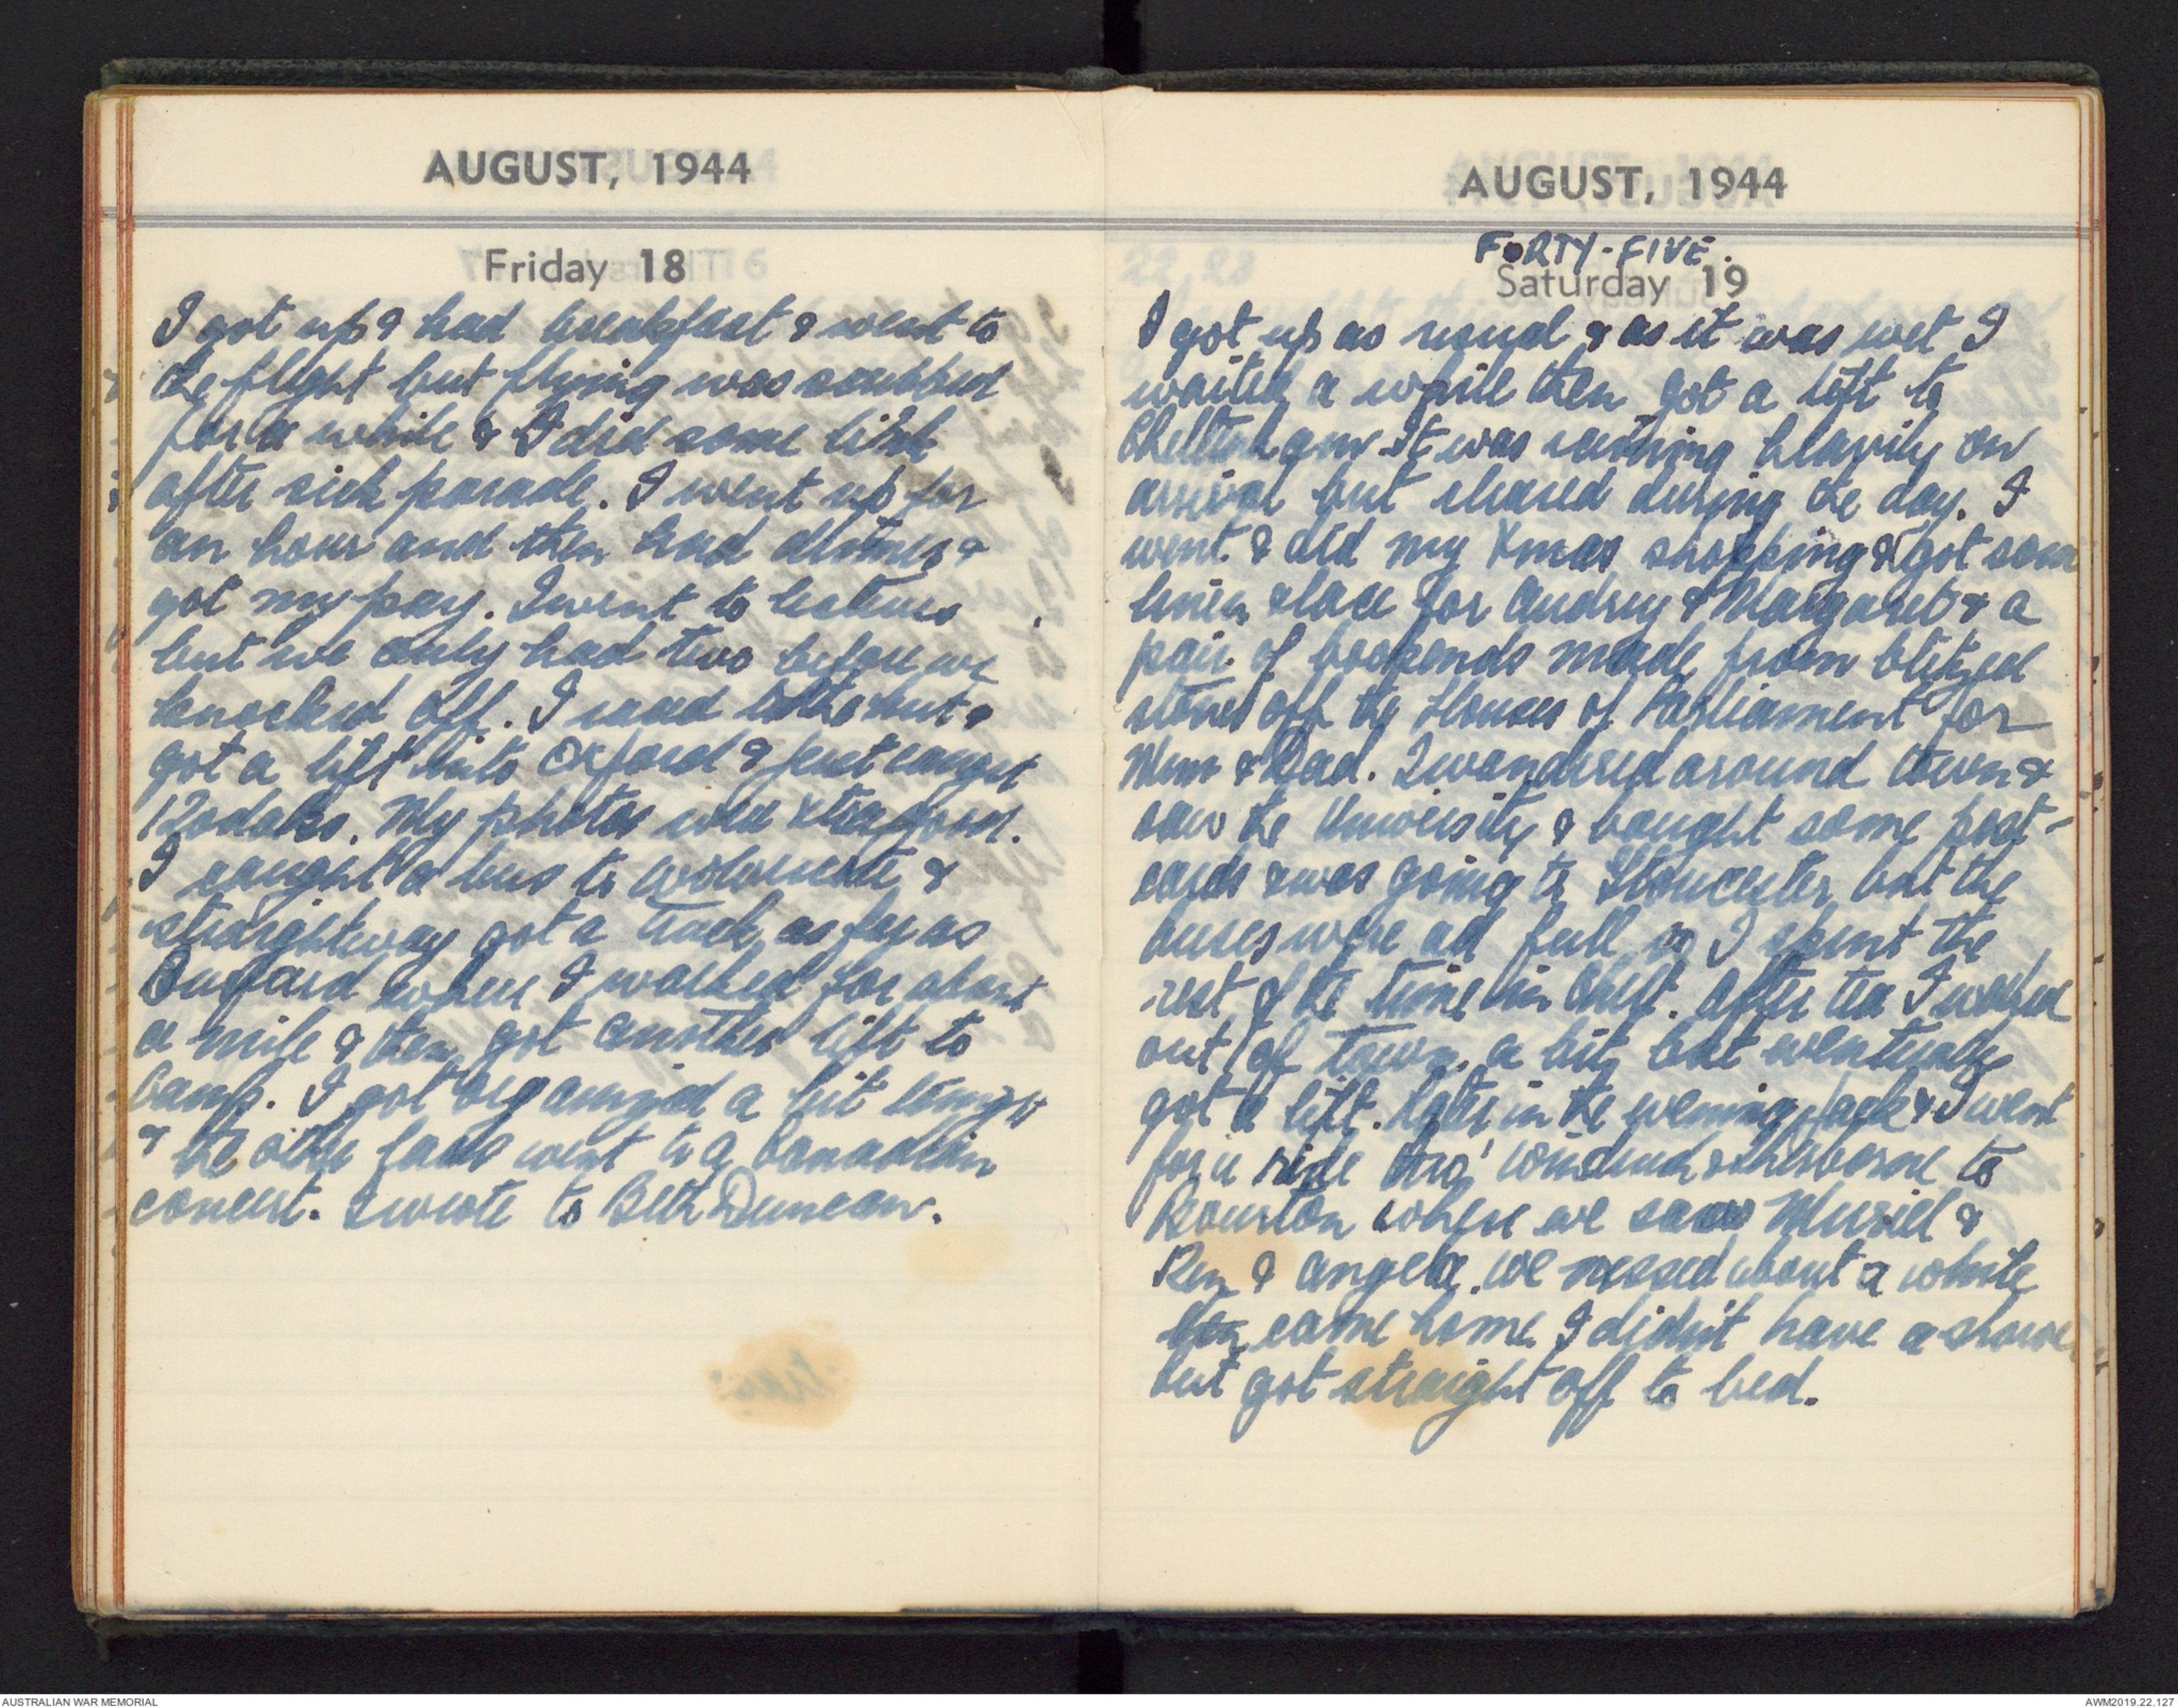 AUGUST, 1944
Friday 18
I got up & had breakfast & went to
the flight but flying was scrubbed
for a while & I did some link
after sick parade. I went up for
an hour and then had dinner &
got my pay. I went to lectures
but we only had two before we
knocked off. I raced to the hut &
got a lift into Oxford & just caught
Kodaks. My photos were xtra good.
I caught a bus to Wolvercote &
straightway got a truck as far as
Burford where I walked for about
a mile & then got another lift to
camp. I got organized a bit tonight
& the other lads went to a Canadian
concert. I wrote to Beth Duncan.
AUGUST, 1944
FORTY-FIVE.
Saturday 19
I got up as usual & as it was wet I
waited a while then got a lift to
Cheltenham. It was raining heavily on
arrival but cleared during the day. I
went & did my Xmas shopping & got some
linen & lace for Audrey & Margaret & a
pair of bookends made from blitzed
stones off the Houses of Parliament for
Mum & Dad. I wandered around town &
saw the University & bought some post-
cards & was going to Gloucester but the
buses were all full so I spent the
rest of the time in Chelt. After tea I walked
out of town a bit but eventually
got a lift. Later in the evening Jack & I went
for a ride thro' Windrush & Sherborne to
Bourton where we saw Muriel &
Ren & Angela. We messed about a while
then came home. I didn't have a shower
but got straight off to bed.
AUSTRALIAN WAR MEMORIAL
AWM2019.22.127